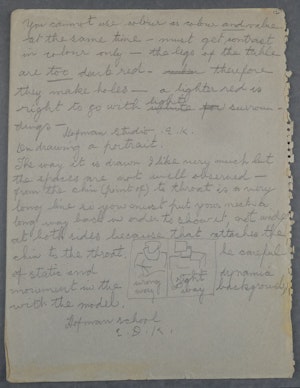 You cannot use colour as colour and value
at the same time - must get contrast
in colour only - the legs of the table
are too dark red - therefore
they make holes - a lighter red is
right to go with light surroun-
dings -
Hofman Studio E.K.
On drawing a portrait.
The way it is drawn I like very much but
the spaces are not well observed -
from the chin (point of) to throat is a very
long line so you must put your mark a
long way back in order to show it, not
at both sides because that attaches the
chin to the throat. be careful
of static and dynamic
movement in the wrong way right way background
with the model.
Hofman School